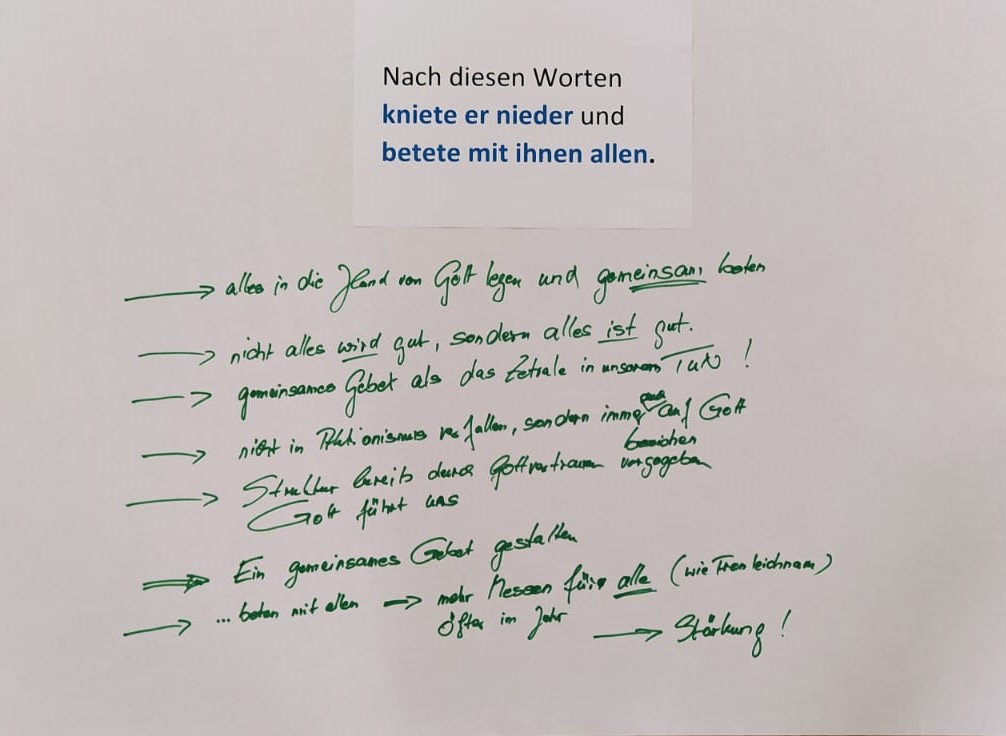 Nach diesen Worten
kniete er nieder und
betete mit ihnen allen.
→ alles in die Hand von Gott legen und gemeinsam beten
→ nicht alles wird gut, sondern alles ist gut.
→ gemeinsames Gebet als das Zetrale in unserem Tun !
→ nicht in Aktionismus verfallen, sondern immer auf Gott
beziehen
→ Struktur bereits durch Gottvertrauen vorgegeben
Gott führt uns
→ Ein gemeinsames Gebet gestalten
→ ... beten mit allen → mehr Messen für alle (wie Fronleichnam)
öfter im Jahr → Stärkung !